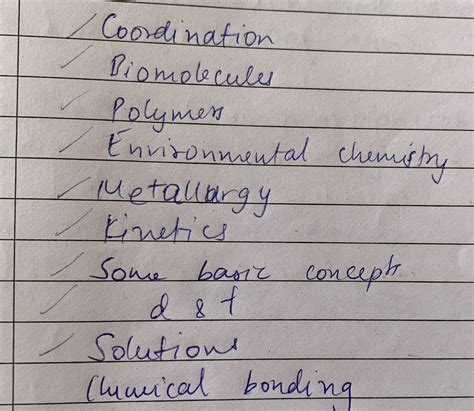 Coordination
Biomolecules
Polymers
Environmental chemistry
Metallurgy
Kinetics
Some basic concept
d & f
Solutions
Chemical bonding